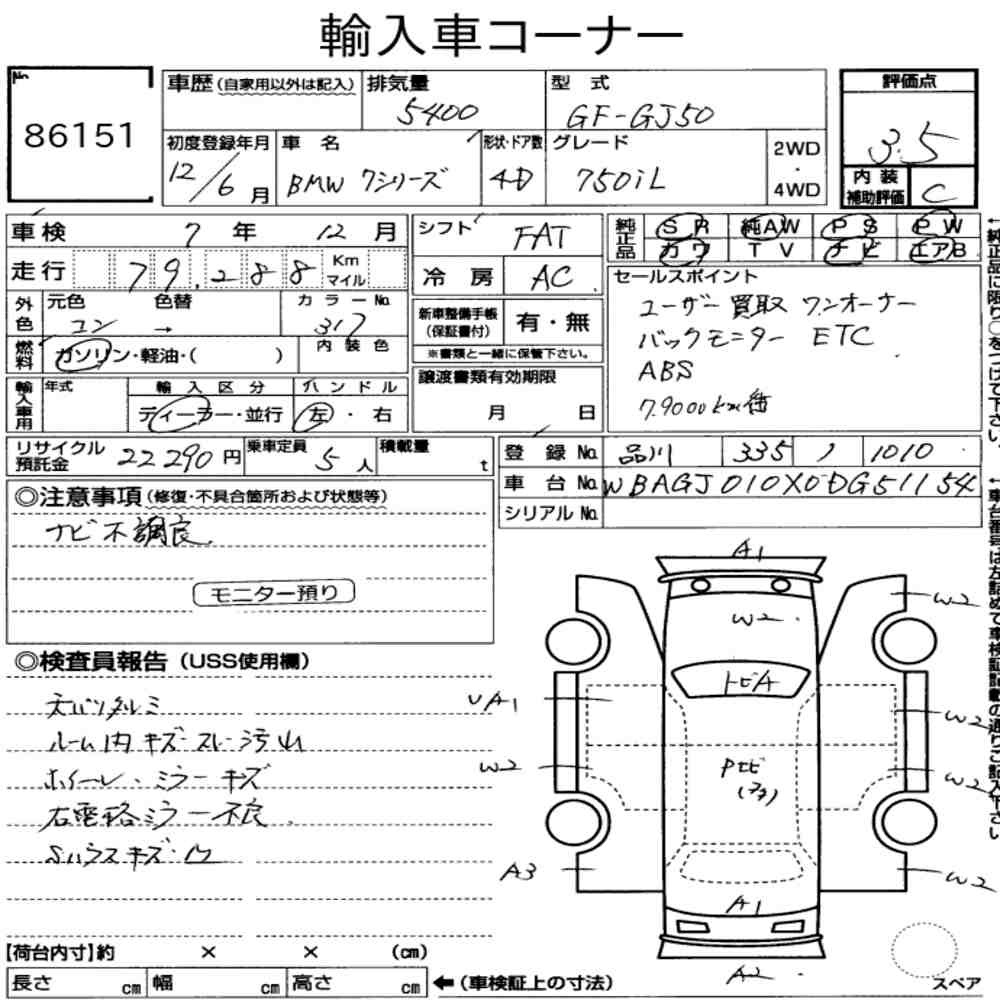 輸入車コーナー
No. 86151
車歴 (自家用以外は記入) 排気量 5400 型式 GF-GJ50 評価点 3.5
初度登録年月 12/6月 車名 BMW 7シリーズ 形状・ドア数 4D グレード 750iL 2WD ・ 4WD
内装補助評価 C
車検 7年 12月 シフト FAT 純正品 SR 純AW PS PW
カワ TV ナビ エアB
走行 79,288 Km マイル 冷房 AC
セールスポイント
ユーザー買取 ワンオーナー
バックモニター ETC
ABS
7.9000km
外色 元色 コン 色替 → カラーNo. 317
新車整備手帳 (保証書付) 有・無
※書類と一緒に保管下さい。
燃料 ガソリン・軽油・( ) 内装色
譲渡書類有効期限
月 日
輸入車用 年式 輸入区分 ディーラー・並行 ハンドル 左・右
リサイクル預託金 22290円 乗車定員 5人 積載量 t
登録No. 品川 335 1010
車台No. WBAGJ010X0DG51154
シリアルNo.
◎注意事項(修復・不具合箇所および状態等)
ナビ不調良
モニター預り
◎検査員報告(USS使用欄)
天バリタルミ
ルーム内キズ・スレ・汚れ
ホイール・ミラーキズ
右電格ミラー不良
A1
W2
W2
トビA
UA1
W2
W2
W2
A3
W2
A1
A2
スペア
【荷台内寸】約 × × (cm)
長さ cm 幅 cm 高さ cm ←(車検証上の寸法)
←純正品に限り○をつけて下さい。
←車台番号は左詰めで車検証記載の通りご記入下さい